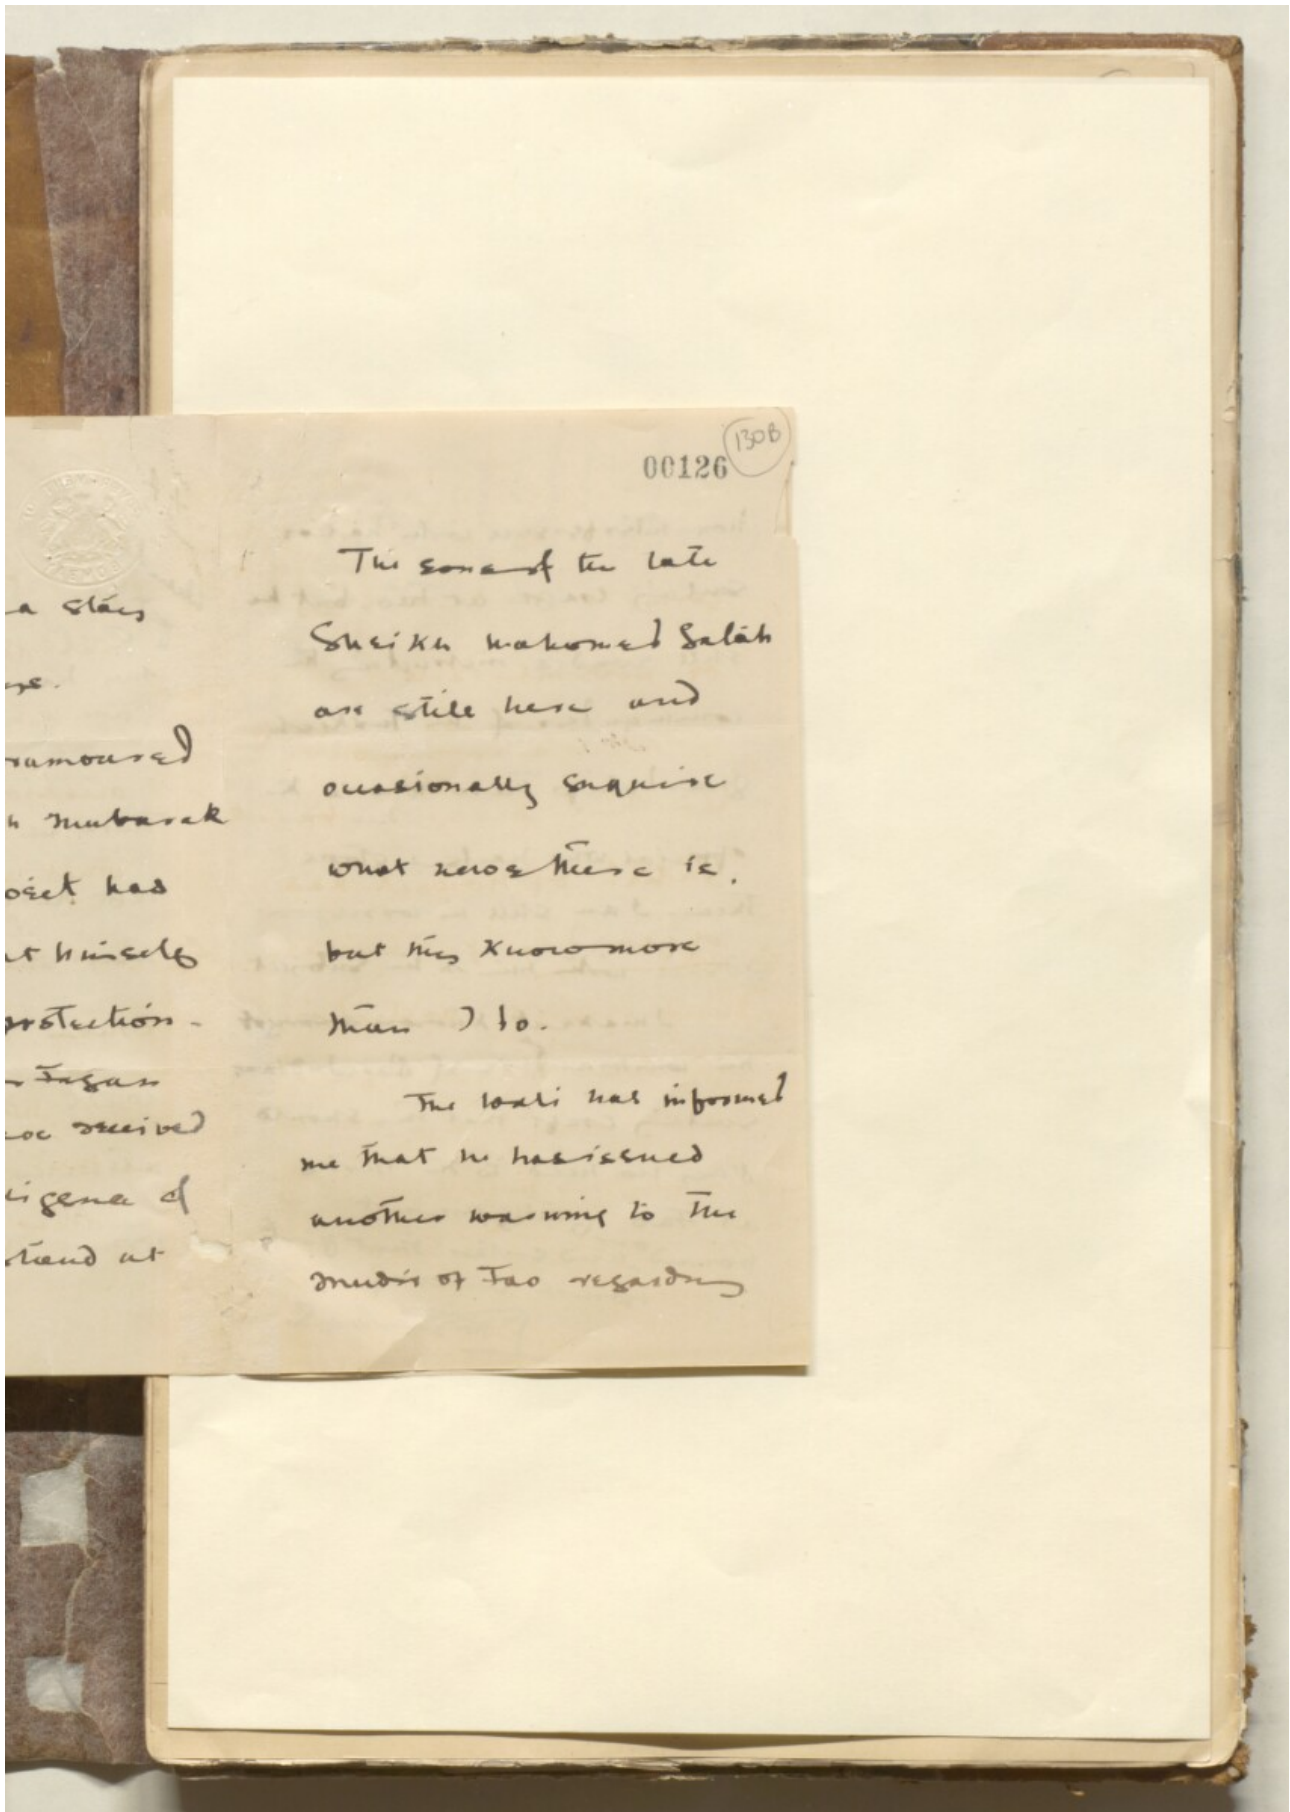 130B
00126
a stay
rumoured
Mubarak
has
himself
protection -
Fagan
received
of
at
The sons of the late
Sheikh Mahomed Salah
are still here and
occasionally enquire
what news there is,
but they know more
than I do.
The Wali has informed
me that he has issued
another warning to the
Mudir of Fao regarding